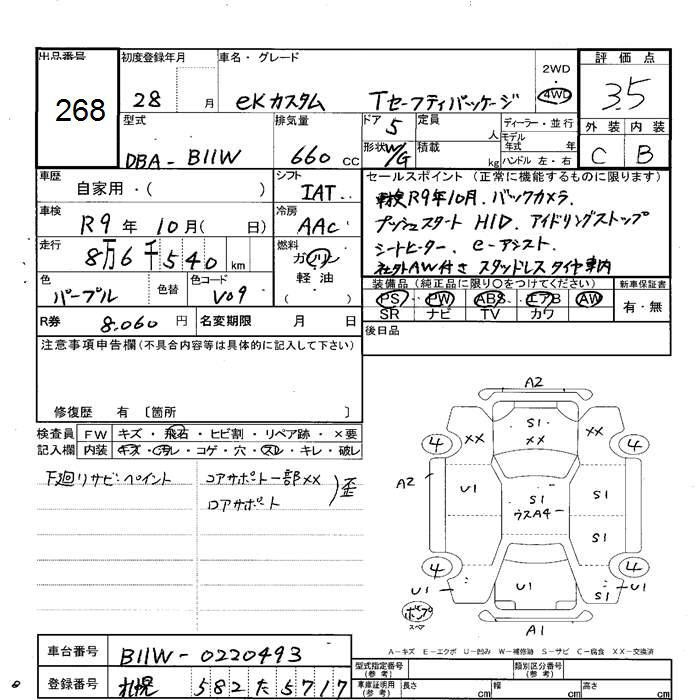 出品番号 初度登録年月 車名・グレード 2WD 評価点
268 28 月 eKカスタム Tセーフティパッケージ 4WD 3.5
型式 排気量 ドア 5 定員 人 ディーラー・並行 外装 内装
DBA-B11W 660 cc 形状 W/G 積載 kg モデル年式 年 ハンドル 左・右 C B
車歴 自家用・( ) シフト IAT セールスポイント (正常に機能するものに限ります)
車検 R9年 10月( 日) 冷房 AAC 車検R9年10月、バックカメラ、
プッシュスタート HID、アイドリングストップ
走行 8万6千540km 燃料 ガソリン 軽油 シートヒーター、e-アシスト、
社外AW付き スタッドレスタイヤ車内
色 パープル 色替 色コード V09 装備品 (純正品に限り○をつけてください) 新車保証書
PS PW ABS エアB AW 有・無
SR ナビ TV カワ
R券 8,060円 名変期限 月 日 後日品
注意事項申告欄(不具合内容等は具体的に記入して下さい)
修復歴 有 〔箇所 〕
検査員 FW キズ・飛石・ヒビ割・リペア跡・×要
記入欄 内装 キズ・汚レ・コゲ・穴・スレ・キレ・破レ
下廻リサビ・ペイント コアサポート一部××
コアサポート )歪
A2
S1
×× ×× ××
4 4
A2 U1 S1 S1
ウスA4
S1
4 4
U1 U1 U1
S1
ポンプ
スペア
A1
A-キズ E-エクボ U-凹み W-補修跡 S-サビ C-腐食 XX-交換済
車台番号 B11W-0220493 型式指定番号(参考) 類別区分番号(参考)
登録番号 札幌 582 た 5717 車庫証明用(参考) 長さ cm 幅 cm 高さ cm